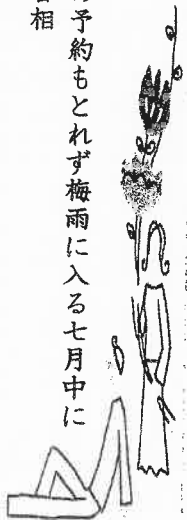 予約もとれず梅雨に入る七月中に
相